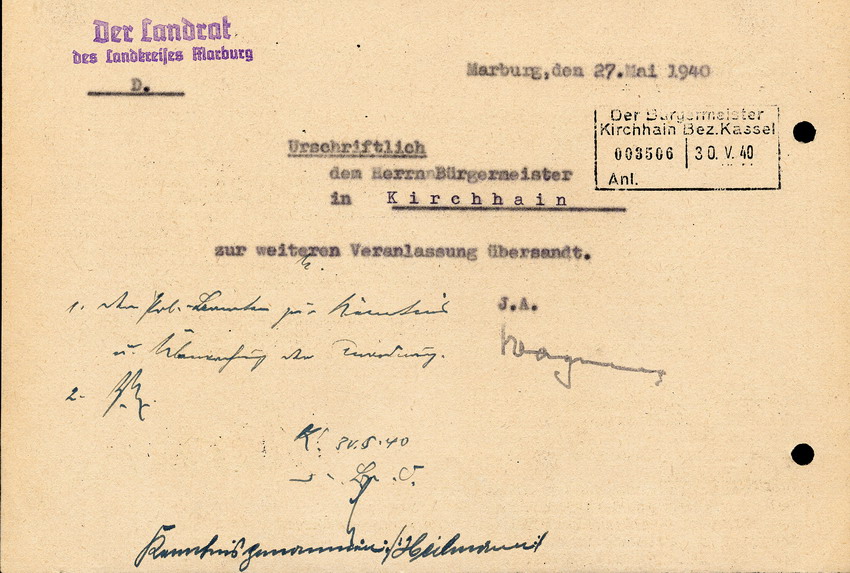 Der Landrat
des Landkreises Marburg
D.
Marburg, den 27.Mai 1940
Der Bürgermeister
Kirchhain Bez.Kassel
003506 30. V. 40
Anl.
Urschriftlich
dem Herrn Bürgermeister
in Kirchhain
zur weiteren Veranlassung übersandt.
J.A.
Wagner
1. den Pol.-Beamten zur Kenntnis
u. Überwachung der
2.
K. 31.5.40
Kenntnis genommen: Heilmann